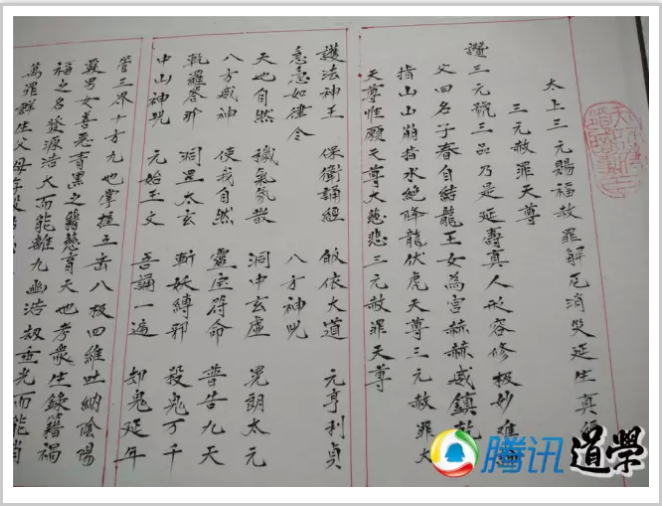 太上三元賜福赦罪解厄消災延生真
三元赦罪天尊
讚三元號三品乃是延壽真人形容修極妙難論
父曰名子春自結龍王女為宮赫赫威鎮乾
指山山崩指水絕降龍伏虎天尊三元赦罪大
天尊惟願天尊大慈悲三元赦罪天尊
護法神王 保衛誦經 皈依大道 元亨利貞
急急如律令 八方神咒
天地自然 穢氣氛散 洞中玄虛 晃朗太元
八方威神 使我自然 靈宝符命 普告九天
乾羅答那 洞罡太玄 斬妖縛邪 殺鬼万千
中山神咒 元始玉文 吾誦一遍 却鬼延年
管三界十方九地掌握五岳八极四維吐納陰陽
男女善惡青黑之籍慈育天地考衆生錄籍禍
福之名發源浩大而能離九幽浩劫垂光而能消
萬罪群生父母存
腾讯道學